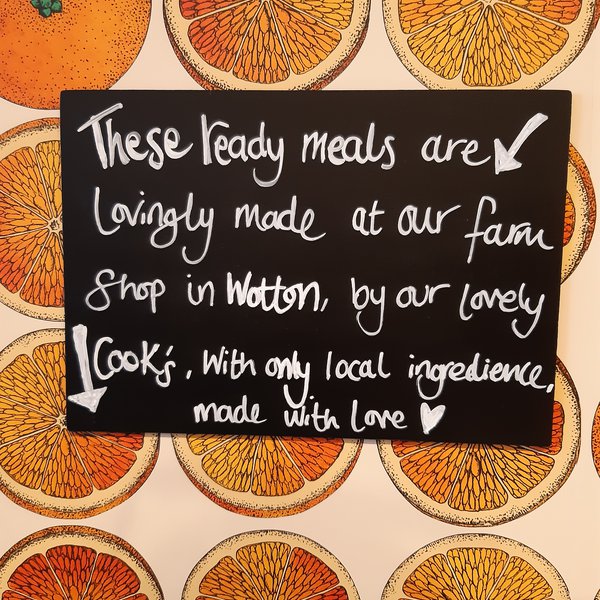 These ready meals are
Lovingly made at our farm
Shop in Wotton, by our lovely
Cook's, With only local ingredience,
made with Love